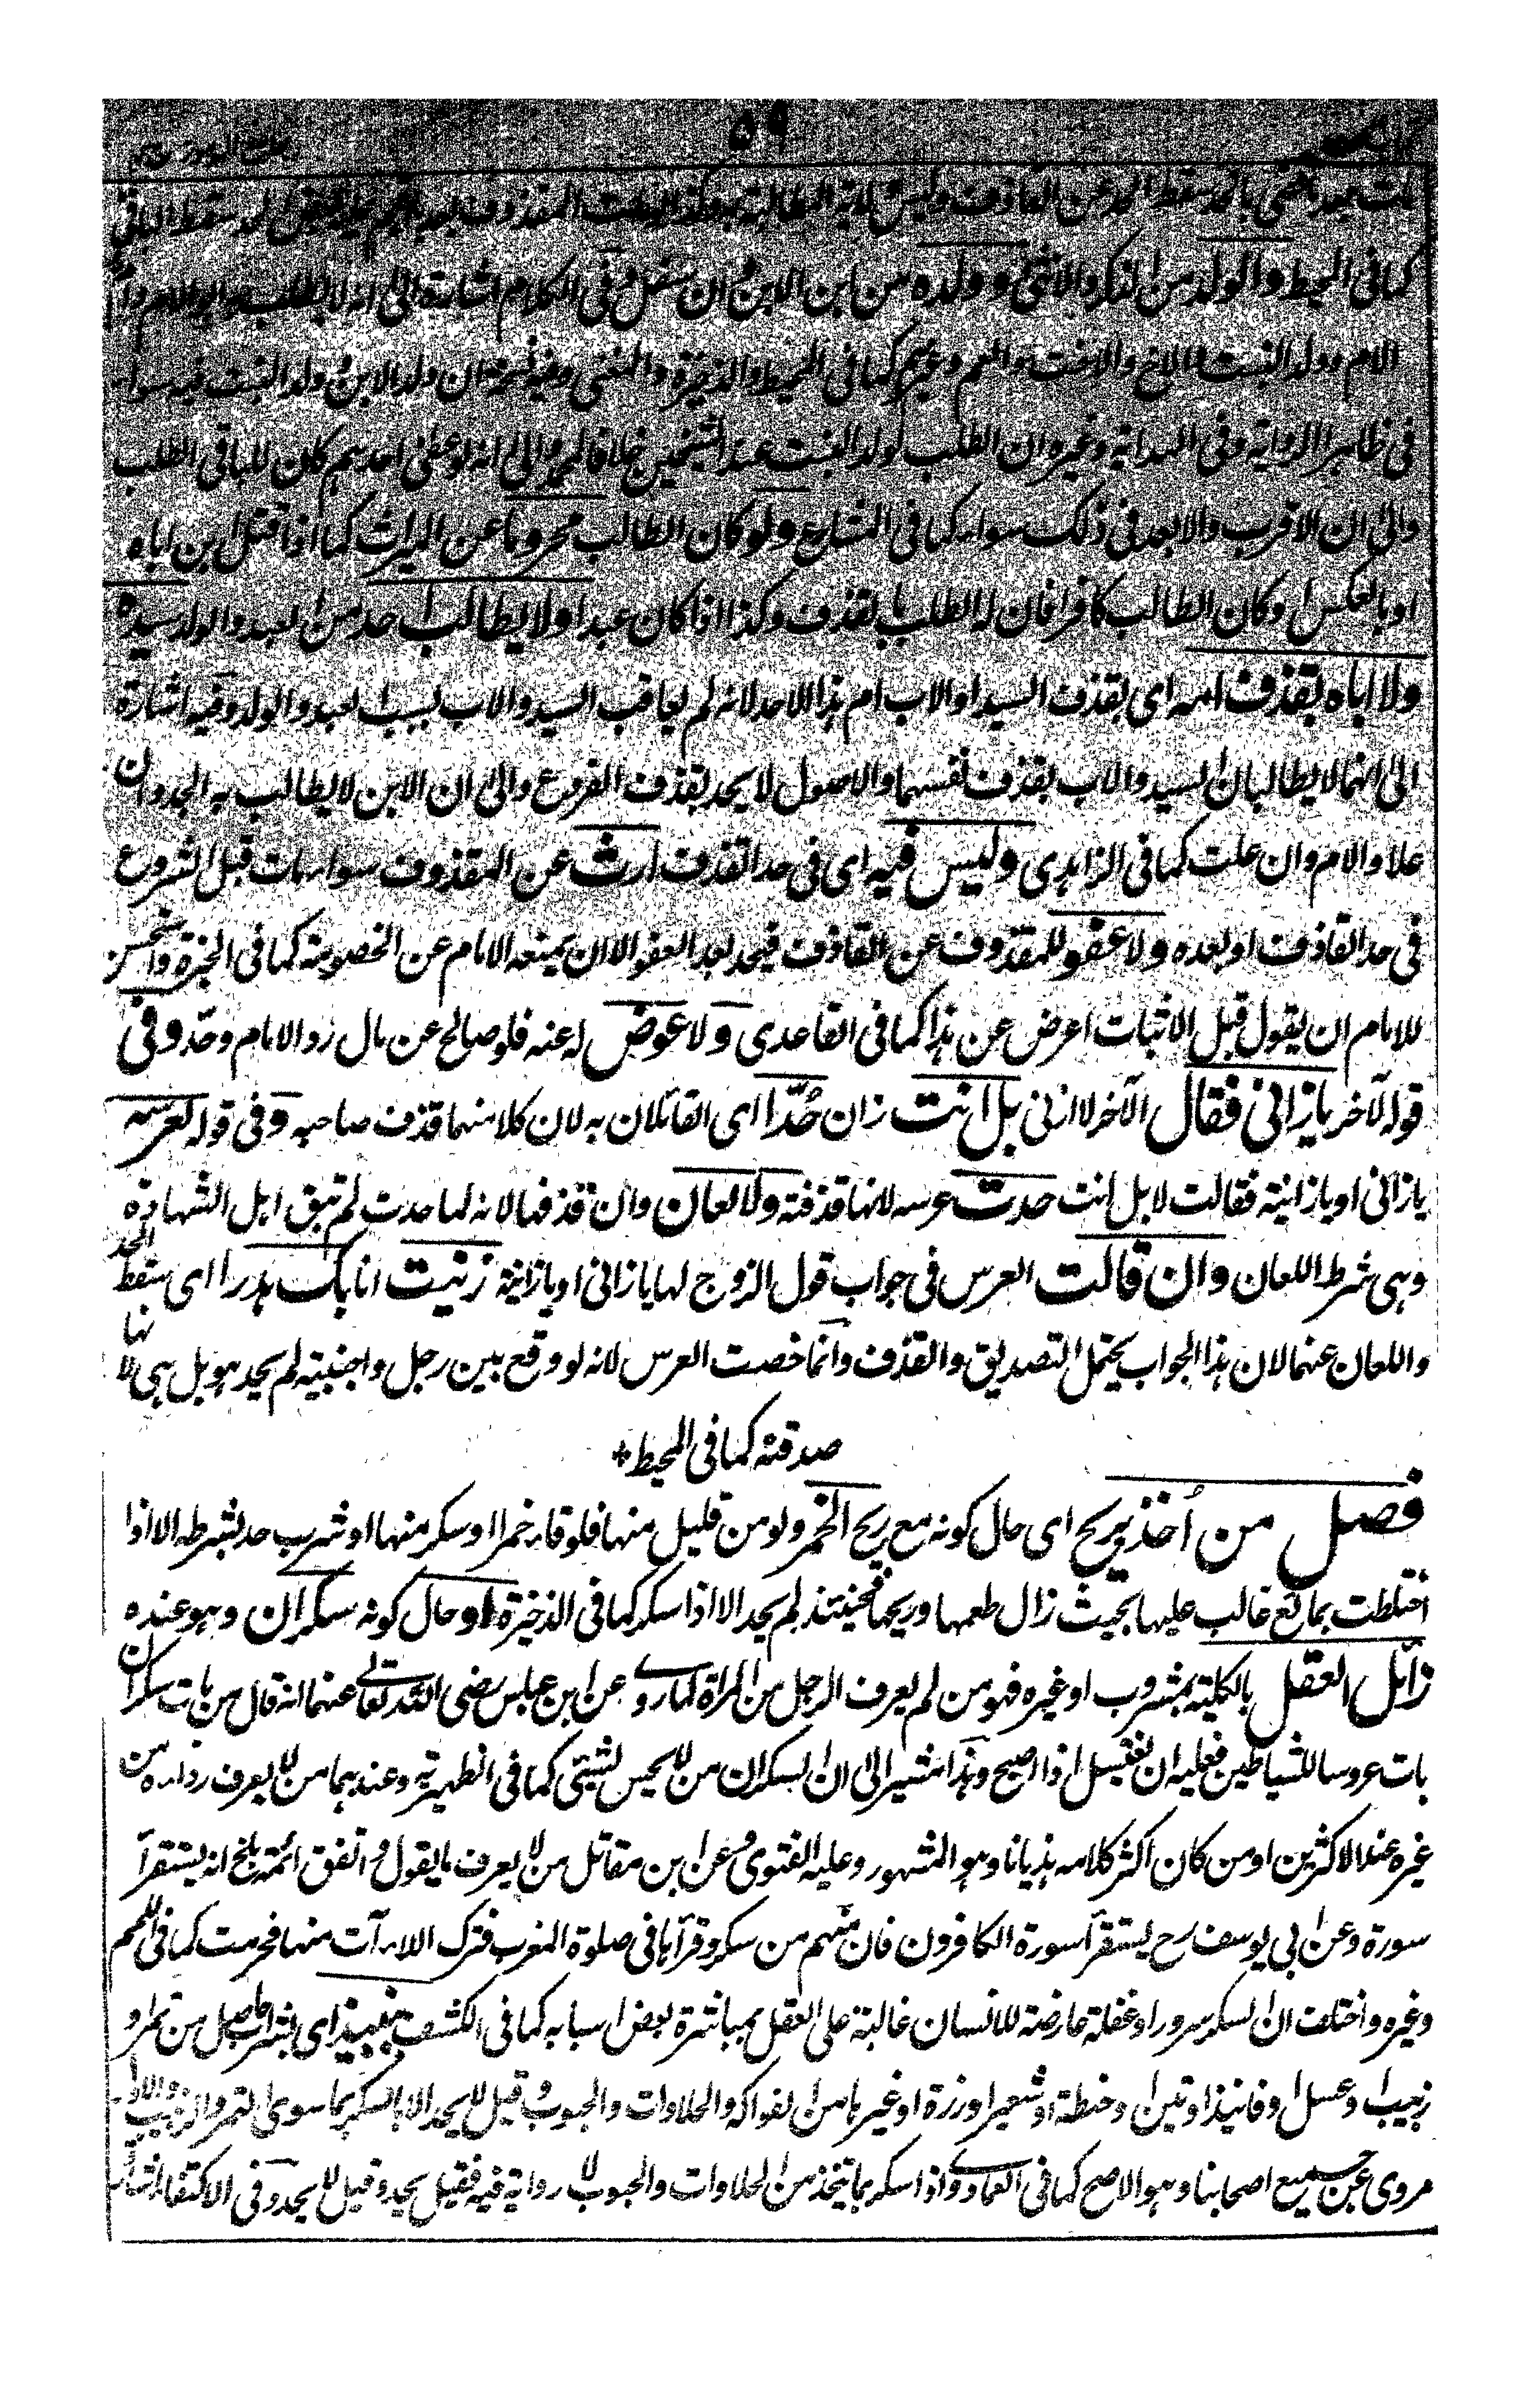 ٥٩
كما فى المحيط والولد من الذكر والانثى وولده من ابن الابن وان سفل وفى الكلام اشارة الى انه لا يطالب به ابو الام وام
الام وولد البنت والاخ والاخت والعم وغيرهم كما فى المحيط والذخيرة والمغنى وغيره ان ولد الابن وولد البنت فيه سواء
فى ظاهر الرواية وفى الهداية وغيره ان الطلب لولد البنت عند الشيخين خلافا لمحمد والى انه لو عفى احدهم كان للباقى الطلب
والى ان الاقرب والابعد فى ذلك سواء كما فى المشارع ولو كان الطالب محروما عن الميراث كما اذا قتل ابن اباه
او بالعكس او كان الطالب كافرا فان له الطلب بالقذف وكذا اذا كان عبدا ولا يطالب احد من العبد والولد سيده
ولا اباه بقذف امه اى بقذف السيد او الاب ام هذا الاحد لانه لم يعاقب السيد والاب بسبب العبد والولد وفيه اشارة
الى انهما لا يطالبان السيد والاب بقذف نفسهما والاصول لا يحد بقذف الفروع والى ان الابن لا يطالب به الجد وان
علا والام وان علت كما فى الزاهدى وليس فيه اى فى حد القذف ارث عن المقذوف سواء مات قبل الشروع
فى حد القاذف او بعده ولا عفو للمقذوف عن القاذف فيحد بعد العفو الا ان يمنعه الامام عن الخصومة كما فى الخيرة واستحسن
للامام ان يقول قبل الاثبات اعرض عن هذا كما فى القاعدى ولا عوض له عنه فلو صالح عن مال رد الامام وحد وفى
قوله لآخر يا زانى فقال الآخر لا ازنى بل انت زان حُدّا اى القائلان به لان كلا منهما قذف صاحبه وفى قوله لعرسه
يا زانى او يا زانية فقالت لا بل انت حدت عرسه لانها قذفته ولا لعان وان قذفها لانه لما حدت لم تبق اهل الشهادة
وهى شرط اللعان وان قالت العرس فى جواب قول الزوج لها يا زانى او يا زانية زنيت انا بك هدرا اى سقط الحد
واللعان عنهما لان هذا الجواب يحتمل التصديق والقذف وانما خصت العرس لانه لو وقع بين رجل واجنبية لم يحد هو بل هى لانها
صدقته كما فى المحيط+
فصل من اُخذ بريح اى حال كونه مع ريح الخمر ولو من قليل منها فلو قاء خمرا او سكر منها او شرب حد بشرطه الا اذا
اختلطت بمائع غالب عليها بحيث زال طعمها وريحها فحينئذ لم يحد الا اذا سكر كما فى الذخيرة او حال كونه سكران وهو عنده
زائل العقل بالكلية بمشروب او غيره فهو من لم يعرف الرجل من المرأة لما روے عن ابن عباس رضى الله تعالے عنهما انه قال من بات سكران
بات عروسا للشياطين فعليه ان يغتسل اذا اصبح وهذا مشير الى ان السكران من لا يحس لشيئ كما فى الظهيرية وعندهما من لا يعرف رداءه من
غيره عند الاكثرين او من كان اكثر كلامه هذيانا وهو المشهور وعليه الفتوى وعن ابن مقاتل من لا يعرف ما يقول واتفق ائمة بلخ انه يستقرأ
سورة وعن ابى يوسف رح يستقرأ سورة الكافرون فان منهم من سكر وقرأها فى صلوة المغرب فترك اللاءات منها فحرمت كما فى اللمم
وغيره واختلف ان السكر سرور او غفلة عارضة للانسان غالبة على العقل بمباشرة بعض اسبابه كما فى الكشف بنبيذ اى بشراب حاصل من تمر او
زبيب او عسل او فانيذ او تين او حنطة او شعير او زرة او غيرها من الفواكه والحلاوات والحبوب وقيل لا يحد الا بالسكر بما سوى التمر والزبيب والاول
مروى عن جميع اصحابنا وهو الاصح كما فى العمادے واذا سكر بما يتخذ من الحلاوات والحبوب لا رواية فيه فقيل يحد وقيل لا يحد وفى الاكتفاء اشارة